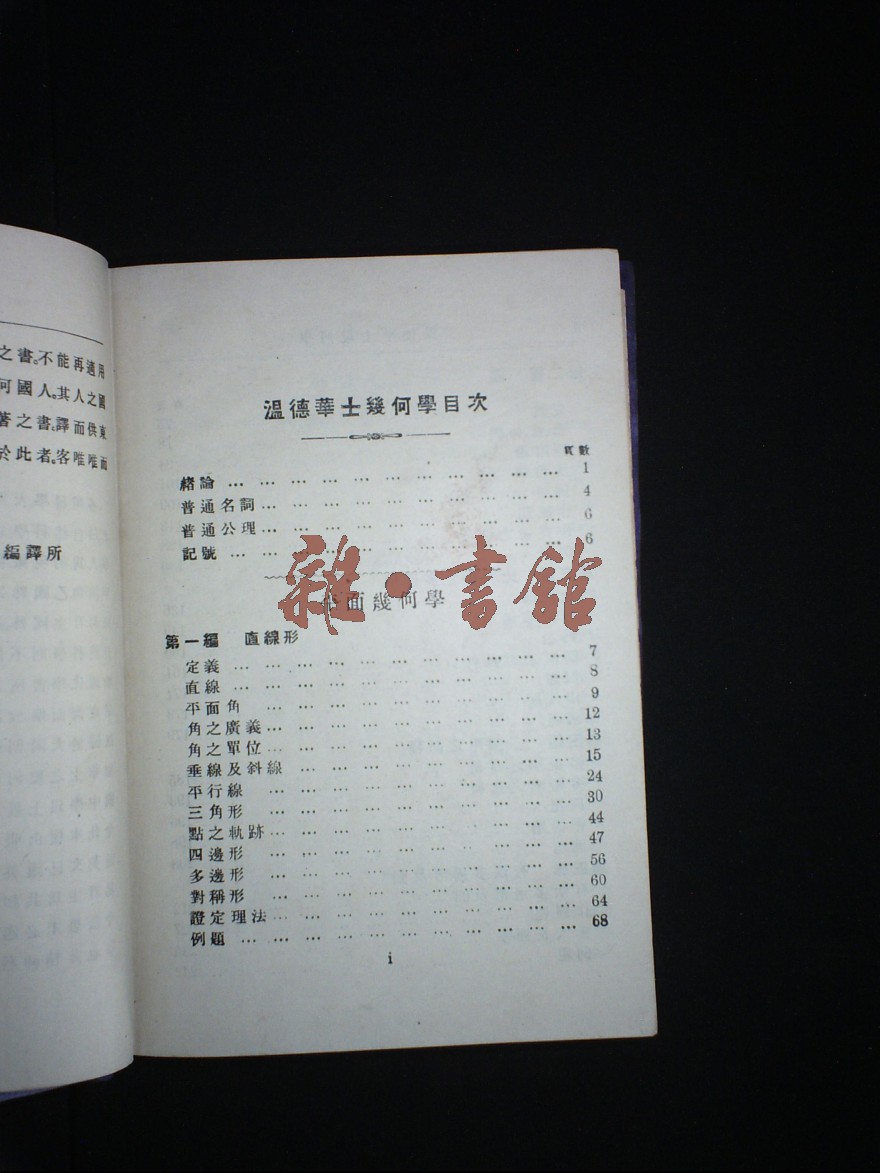 溫德華士幾何學目次
頁數
緒論 … … … … … … … … … … … 1
普通名詞… … … … … … … … … … 4
普通公理… … … … … … … … … … 6
記號 … … … … … … … … … … … 6
平面幾何學
第一編 直線形
定義 … … … … … … … … … … … 7
直線 … … … … … … … … … … … 8
平面角 … … … … … … … … … … 9
角之廣義… … … … … … … … … … 12
角之單位… … … … … … … … … … 13
垂線及斜線 … … … … … … … … … 15
平行線 … … … … … … … … … … 24
三角形 … … … … … … … … … … 30
點之軌跡… … … … … … … … … … 44
四邊形 … … … … … … … … … … 47
多邊形 … … … … … … … … … … 56
對稱形 … … … … … … … … … … 60
證定理法… … … … … … … … … … 64
例題 … … … … … … … … … … … 68
i
之書。不能再適用
何國人。其人之國
著之書。譯而供東
於此者。客唯唯而
編譯所
雜·書館